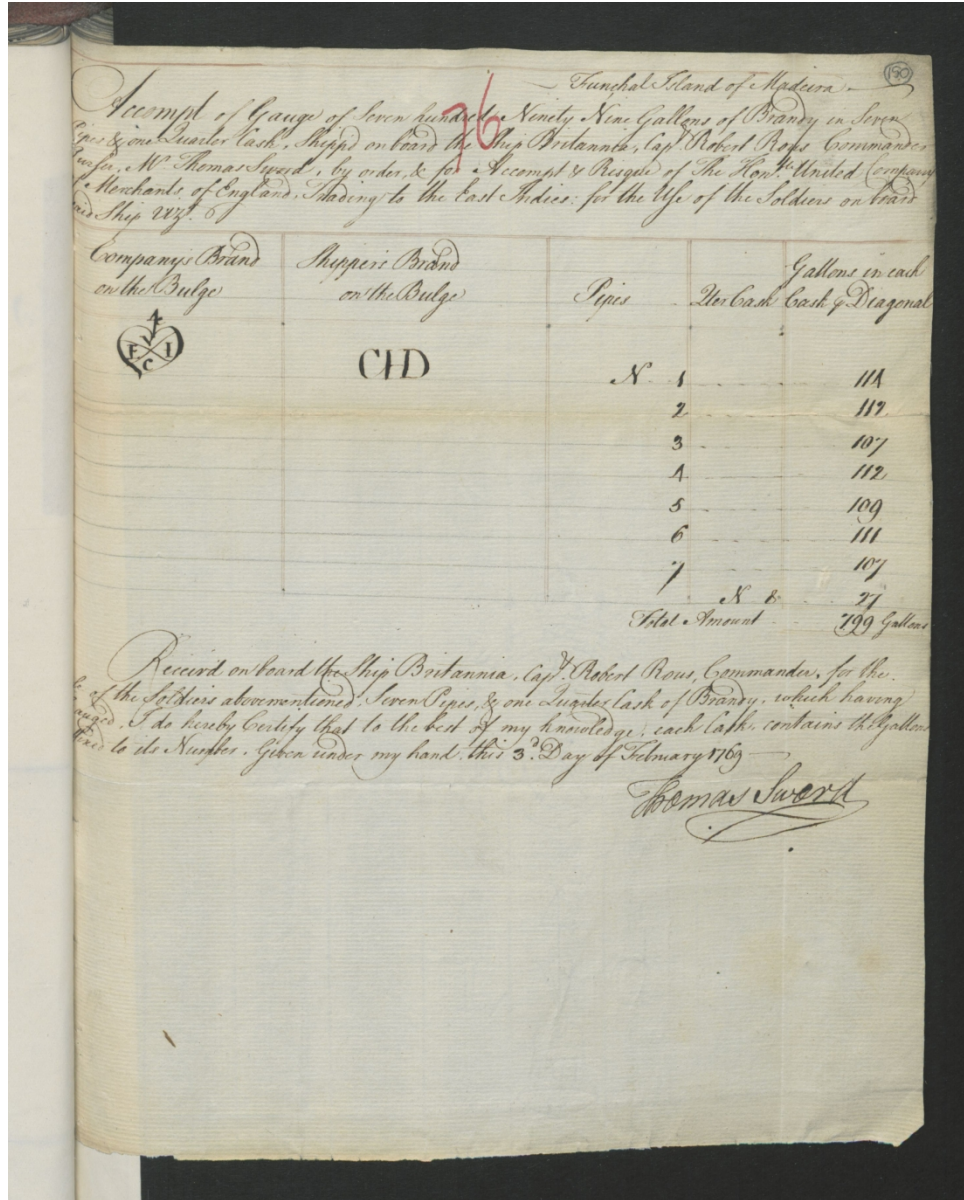 190
Funchal Island of Madeira
76
Accompt of Gauge of Seven hundred Ninety Nine Gallons of Brandy in Seven
Pipes & one Quarter Cask, Shipp'd on board the Ship Britannia, Capt. Robert Rous Commander
Purser, Mr. Thomas Sword, by order, & for Accompt & Risque of The Honble. United Company
of Merchants of England, Trading to the East Indies: for the Use of the Soldiers on board
said Ship Vizt.
Company's Brand on the Bulge
Shipper's Brand on the Bulge
Pipes
Qter Cask
Gallons in each Cask ⅌ Diagonal
4
V E I C
CHD
N. 1 114
2 112
3 107
4 112
5 109
6 111
7 107
N 8 27
Total Amount 799 Gallons
Receiv'd on board the Ship Britannia, Capt. Robert Rous, Commander, for the
of the Soldiers abovementioned, Seven Pipes, & one Quarter Cask of Brandy, which having
gauged, I do hereby Certify that to the best of my knowledge, each Cask contains the Gallons
to its Number. Given under my hand this 3d. Day of February 1769
Thomas Sword